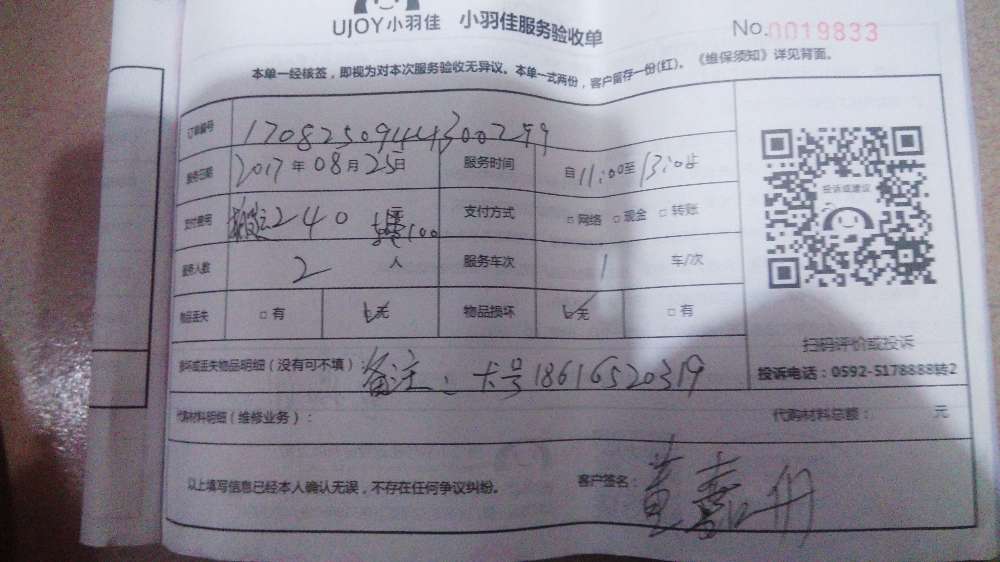 UJOY小羽佳 小羽佳服务验收单 No.0019833
本单一经核签，即视为对本次服务验收无异议。本单一式两份，客户留存一份(红)。《维保须知》详见背面。
订单编号 170825094443007
服务日期 2017年08月25日 服务时间 自11:00至13:00止
支付费用 搬运240 100 支付方式 □网络 □现金 □转账
服务人数 2 人 服务车次 1 车/次
物品丢失 □有 无 物品损坏 无 □有
投诉或建议
扫码评价或投诉
投诉电话：0592-5178888转2
损坏或丢失物品明细（没有可不填）：备注：卡号18616520319
代购材料明细（维修业务）： 代购材料总额： 元
以上填写信息已经本人确认无误，不存在任何争议纠纷。 客户签名：黄